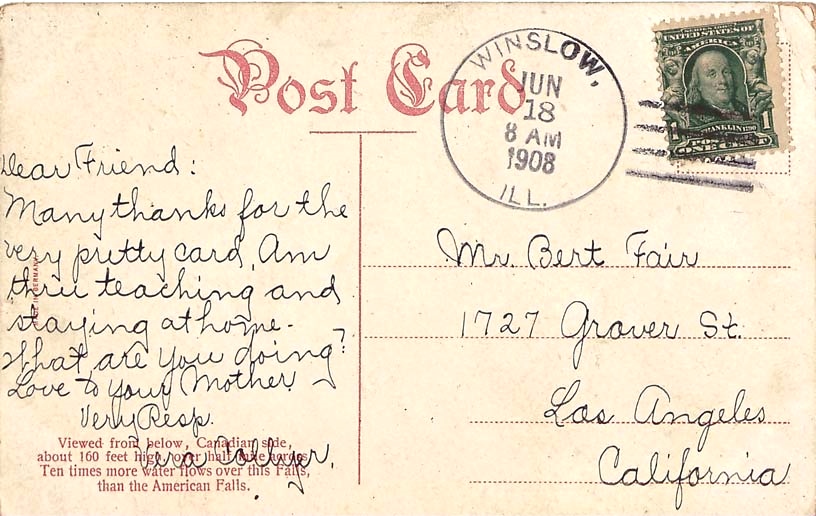 Post Card
WINSLOW,
JUN
18
8 AM
1908
ILL.
SERIES 1902
UNITED STATES OF
AMERICA
FRANKLIN
1 1
ONE CENT
Dear Friend:
Many thanks for the
very pretty card. Am
thru teaching and
staying at home.
What are you doing?
Love to your Mother.
Very Resp.
Vera
MADE IN GERMANY
Viewed from below, Canadian side,
about 160 feet high, over half mile across.
Ten times more water flows over this Falls,
than the American Falls.
Mr. Bert Fair
1727 Grover St.
Los Angeles
California